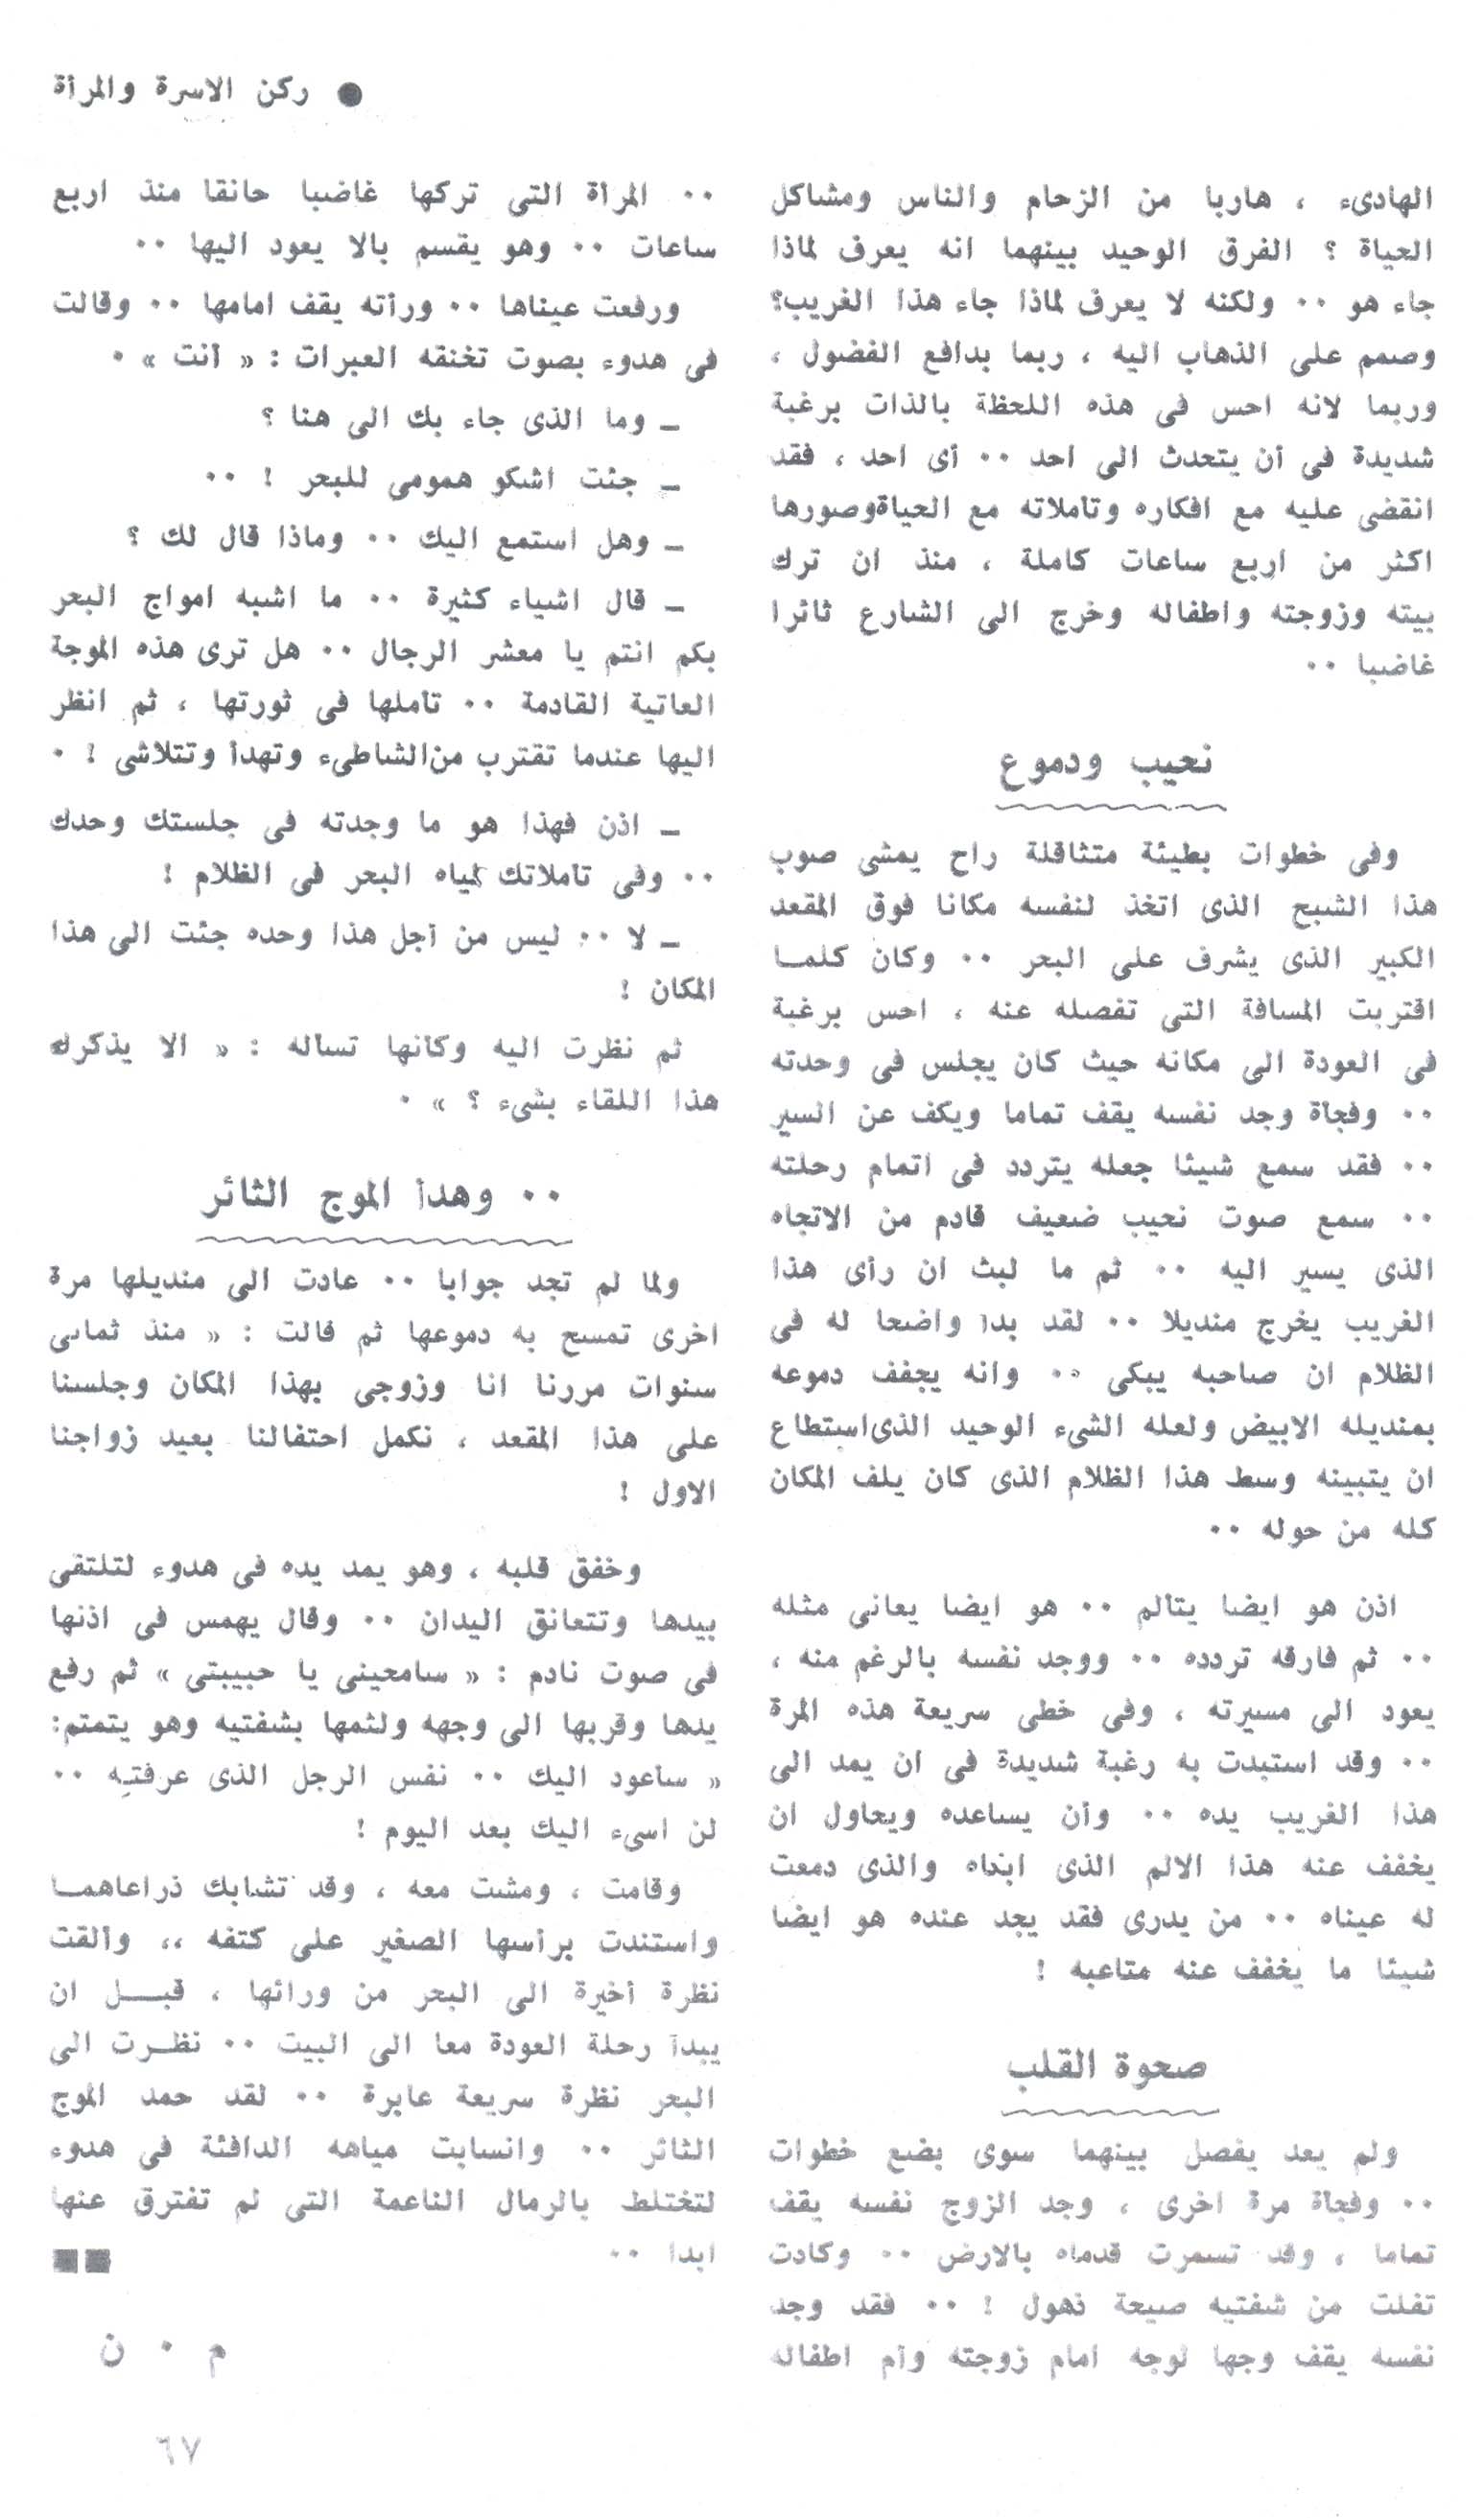 ● ركن الاسرة والمرأة
الهادىء ، هاربا من الزحام والناس ومشاكل
الحياة ؟ الفرق الوحيد بينهما انه يعرف لماذا
جاء هو ٠٠ ولكنه لا يعرف لماذا جاء هذا الغريب؟
وصمم على الذهاب اليه ، ربما بدافع الفضول ،
وربما لانه احس فى هذه اللحظة بالذات برغبة
شديدة فى أن يتحدث الى احد ٠٠ أى احد ، فقد
انقضى عليه مع افكاره وتأملاته مع الحياة وصورها
اكثر من اربع ساعات كاملة ، منذ ان ترك
بيته وزوجته واطفاله وخرج الى الشارع ثائرا
غاضبا ٠٠
نحيب ودموع
وفى خطوات بطيئة متثاقلة راح يمشى صوب
هذا الشبح الذى اتخذ لنفسه مكانا فوق المقعد
الكبير الذى يشرف على البحر ٠٠ وكان كلمـا
اقتربت المسافة التى تفصله عنه ، احس برغبة
فى العودة الى مكانه حيث كان يجلس فى وحدته
٠٠ وفجأة وجد نفسه يقف تماما ويكف عن السير
٠٠ فقد سمع شيئا جعله يتردد فى اتمام رحلته
٠٠ سمع صوت نحيب ضعيف قادم من الاتجاه
الذى يسير اليه ٠٠ ثم ما لبث ان رأى هذا
الغريب يخرج منديلا ٠٠ لقد بدا واضحا له فى
الظلام ان صاحبه يبكى ٠٠ وانه يجفف دموعه
بمنديله الابيض ولعله الشىء الوحيد الذى استطاع
ان يتبينه وسط هذا الظلام الذى كان يلف المكان
كله من حوله ٠٠
اذن هو ايضا يتألم ٠٠ هو ايضا يعانى مثله
٠٠ ثم فارقه تردده ٠٠ ووجد نفسه بالرغم منه ،
يعود الى مسيرته ، وفى خطى سريعة هذه المرة
٠٠ وقد استبدت به رغبة شديدة فى ان يمد الى
هذا الغريب يده ٠٠ وأن يساعده ويحاول ان
يخفف عنه هذا الالم الذى ابكاه والذى دمعت
له عيناه ٠٠ من يدرى فقد يجد عنده هو ايضا
شيئا ما يخفف عنه متاعبه !
صحوة القلب
ولم يعد يفصل بينهما سوى بضع خطوات
٠٠ وفجأة مرة اخرى ، وجد الزوج نفسه يقف
تماما ، وقد تسمرت قدماه بالارض ٠٠ وكادت
تفلت من شفتيه صيحة ذهول ! ٠٠ فقد وجد
نفسه يقف وجها لوجه امام زوجته وأم اطفاله
٠٠ المرأة التى تركها غاضبا حانقا منذ اربع
ساعات ٠٠ وهو يقسم بالا يعود اليها ٠٠
ورفعت عيناها ٠٠ ورأته يقف امامها ٠٠ وقالت
فى هدوء بصوت تخنقه العبرات : « أنت » ٠
ـ وما الذى جاء بك الى هنا ؟
ـ جئت اشكو همومى للبحر ! ٠٠
ـ وهل استمع اليك ٠٠ وماذا قال لك ؟
ـ قال اشياء كثيرة ٠٠ ما اشبه امواج البحر
بكم انتم يا معشر الرجال ٠٠ هل ترى هذه الموجة
العاتية القادمة ٠٠ تأملها فى ثورتها ، ثم انظر
اليها عندما تقترب من الشاطىء وتهدأ وتتلاشى ! ٠
ـ اذن فهذا هو ما وجدته فى جلستك وحدك
٠٠ وفى تأملاتك لمياه البحر فى الظلام !
ـ لا ٠٠ ليس من أجل هذا وحده جئت الى هذا
المكان !
ثم نظرت اليه وكأنها تسأله : « الا يذكرك
هذا اللقاء بشىء ؟ » ٠
٠٠ وهدأ الموج الثائر
ولما لم تجد جوابا ٠٠ عادت الى منديلها مرة
اخرى تمسح به دموعها ثم قالت : « منذ ثمانى
سنوات مررنا انا وزوجى بهذا المكان وجلسنا
على هذا المقعد ، نكمل احتفالنا بعيد زواجنا
الاول !
وخفق قلبه ، وهو يمد يده فى هدوء لتلتقى
بيدها وتتعانق اليدان ٠٠ وقال يهمس فى اذنها
فى صوت نادم : « سامحينى يا حبيبتى » ثم رفع
يدها وقربها الى وجهه ولثمها بشفتيه وهو يتمتم:
« سأعود اليك ٠٠ نفس الرجل الذى عرفتِه ٠٠
لن اسىء اليك بعد اليوم !
وقامت ، ومشت معه ، وقد تشابك ذراعاهمـا
واستندت برأسها الصغير على كتفه ،، وألقت
نظرة أخيرة الى البحر من ورائها ، قبـــل ان
يبدآ رحلة العودة معا الى البيت ٠٠ نظـرت الى
البحر نظرة سريعة عابرة ٠٠ لقد خمد الموج
الثائر ٠٠ وانسابت مياهه الدافئة فى هدوء
لتختلط بالرمال الناعمة التى لم تفترق عنها
ابدا ٠٠
م ٠ ن
٦٧